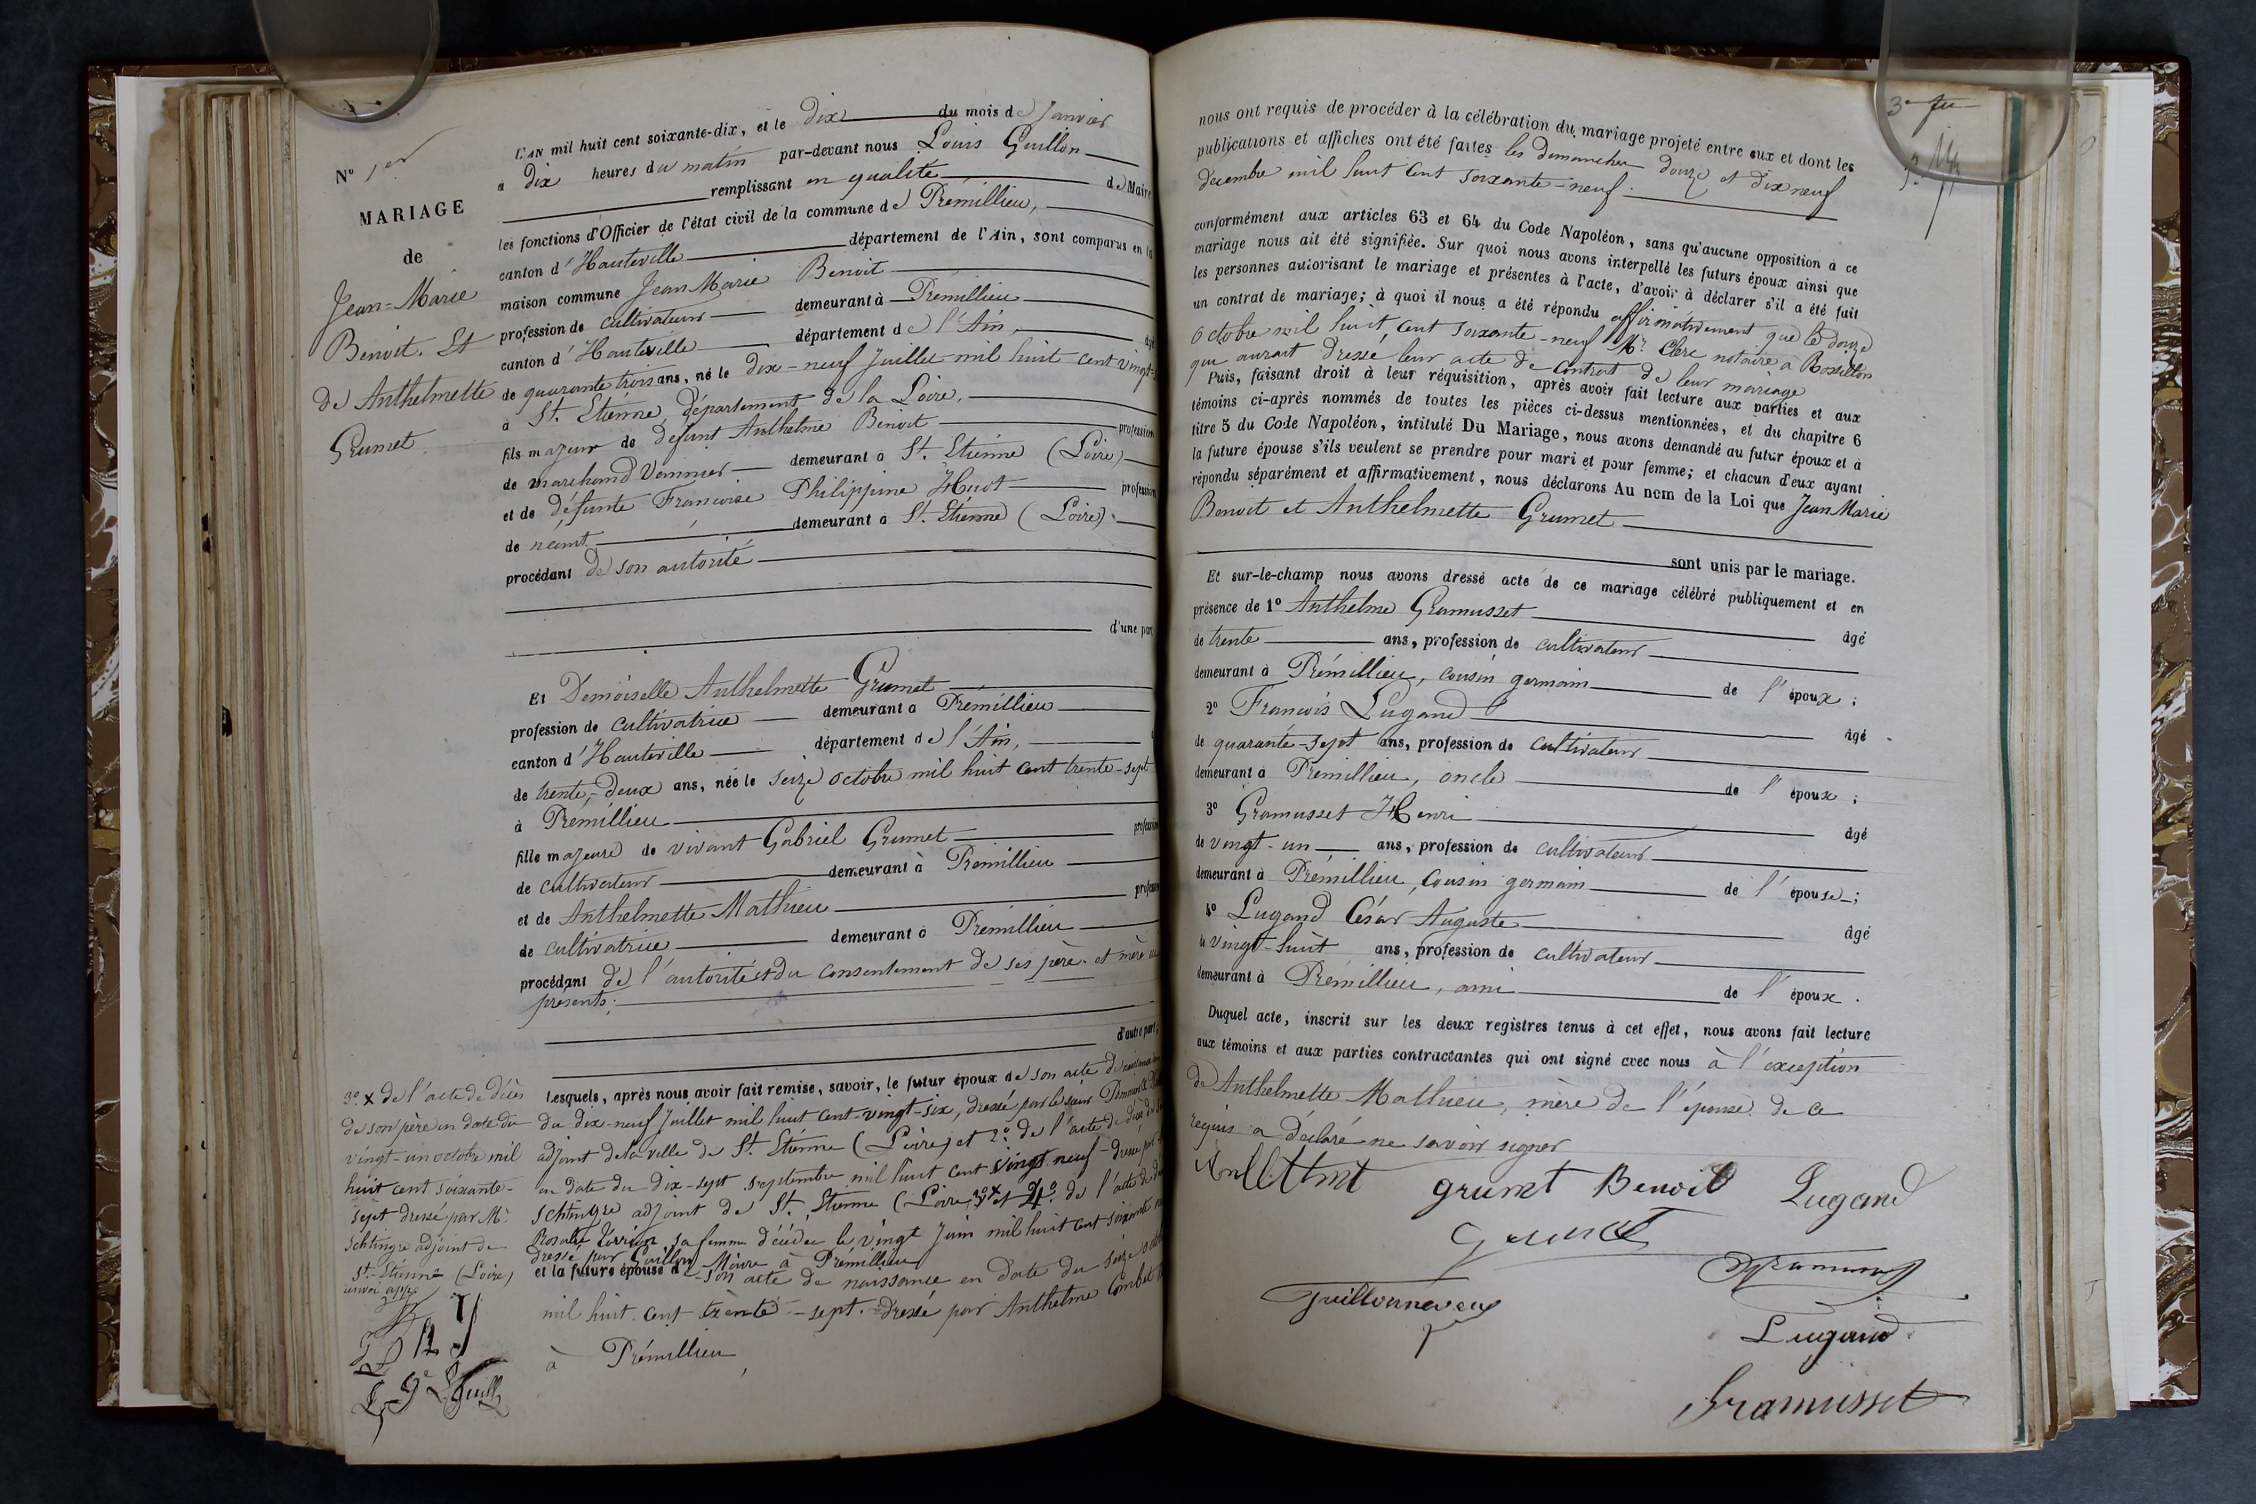 N° 1er
MARIAGE
de
Jean-Marie
Benoit. Et
de Anthelmette
Grumet.
L'AN mil huit cent soixante-dix, et le dix du mois de Janvier
à dix heures du matin par-devant nous Louis Guillon
remplissant en qualité de Maire
les fonctions d'Officier de l'état civil de la commune de Prémillieu,
canton d'Hauteville département de l'Ain, sont comparus en la
maison commune Jean Marie Benoit
profession de cultivateur demeurant à Prémillieu
canton d'Hauteville département de l'Ain, âgé
de quarante trois ans, né le dix-neuf Juillet mil huit cent vingt-
à St. Etienne, département de la Loire,
fils majeur de défunt Anthelme Benoit profession
de marchand Vannier demeurant à St. Etienne (Loire)
et de défunte Francoise Philippine Huot profession
de néant demeurant à St. Etienne (Loire).
procédant de son autorité
d'une part
Et Demoiselle Anthelmette Grumet
profession de cultivatrice demeurant à Prémillieu
canton d'Hauteville département de l'Ain,
de trente-deux ans, née le seize octobre mil huit cent trente-sept
à Prémillieu
fille majeure de vivant Gabriel Grumet profession
de cultivateur demeurant à Prémillieu
et de Anthelmette Mathieu profession
de cultivatrice demeurant à Prémillieu
procédant de l'autorité et du consentement de ses père et mère
présents;
d'autre part;
Lesquels, après nous avoir fait remise, savoir, le futur époux de son acte de naissance
du dix-neuf Juillet mil huit cent-vingt-six, dressé par le sieur
adjoint de la ville de St. Etienne (Loire) et 2° de l'acte de décès de
en date du dix-sept septembre mil huit cent vingt neuf - dressé par
Schtingre adjoint de St. Etienne (Loire) 3° x et 4° de l'acte de
Rosalie sa femme décédée le vingt Juin mil huit cent soixante
dressé par Guillon Maire à Prémillieu
et la future épouse de son acte de naissance en date du seize
mil huit cent trente-sept. dressé par Anthelme Combet
à Prémillieu
3° x de l'acte de décès
de son père en date du
vingt-un octobre mil
huit cent soixante-
sept dressé par Mr
Schtingre adjoint de
St-Etienne (Loire)
3e
nous ont requis de procéder à la célébration du mariage projeté entre eux et dont les
publications et affiches ont été faites les dimanches douze et dix neuf
décembre mil huit cent soixante-neuf.
conformément aux articles 63 et 64 du Code Napoléon, sans qu'aucune opposition à ce
mariage nous ait été signifiée. Sur quoi nous avons interpellé les futurs époux ainsi que
les personnes autorisant le mariage et présentes à l'acte, d'avoir à déclarer s'il a été fait
un contrat de mariage; à quoi il nous a été répondu affirmativement que le douze
octobre mil huit cent soixante-neuf Mr. Clerc notaire à Rossillon
qui aurait dressé leur acte de contrat de leur mariage
Puis, faisant droit à leur réquisition, après avoir fait lecture aux parties et aux
témoins ci-après nommés de toutes les pièces ci-dessus mentionnées, et du chapitre 6
titre 5 du Code Napoléon, intitulé Du Mariage, nous avons demandé au futur époux et à
la future épouse s'ils veulent se prendre pour mari et pour femme; et chacun d'eux ayant
répondu séparément et affirmativement, nous déclarons Au nom de la Loi que Jean Marie
Benoit et Anthelmette Grumet
sont unis par le mariage.
Et sur-le-champ nous avons dressé acte de ce mariage célébré publiquement et en
présence de 1° Anthelme Gramusset âgé
de trente ans, profession de cultivateur
demeurant à Prémillieu, cousin germain de l'époux;
2° Francois Lugand âgé
de quarante-sept ans, profession de cultivateur
demeurant à Prémillieu, oncle de l'époux;
3° Gramusset Henri âgé
de vingt-un ans, profession de cultivateur
demeurant à Prémillieu, cousin germain de l'épouse;
4° Lugand César Auguste âgé
de vingt-huit ans, profession de cultivateur
demeurant à Prémillieu, ami de l'époux.
Duquel acte, inscrit sur les deux registres tenus à cet effet, nous avons fait lecture
aux témoins et aux parties contractantes qui ont signé avec nous à l'exception
de Anthelmette Mathieu, mère de l'épouse de ce
requis a déclaré ne savoir signer
grumet Benoit Lugand
Lugand
Gramusset